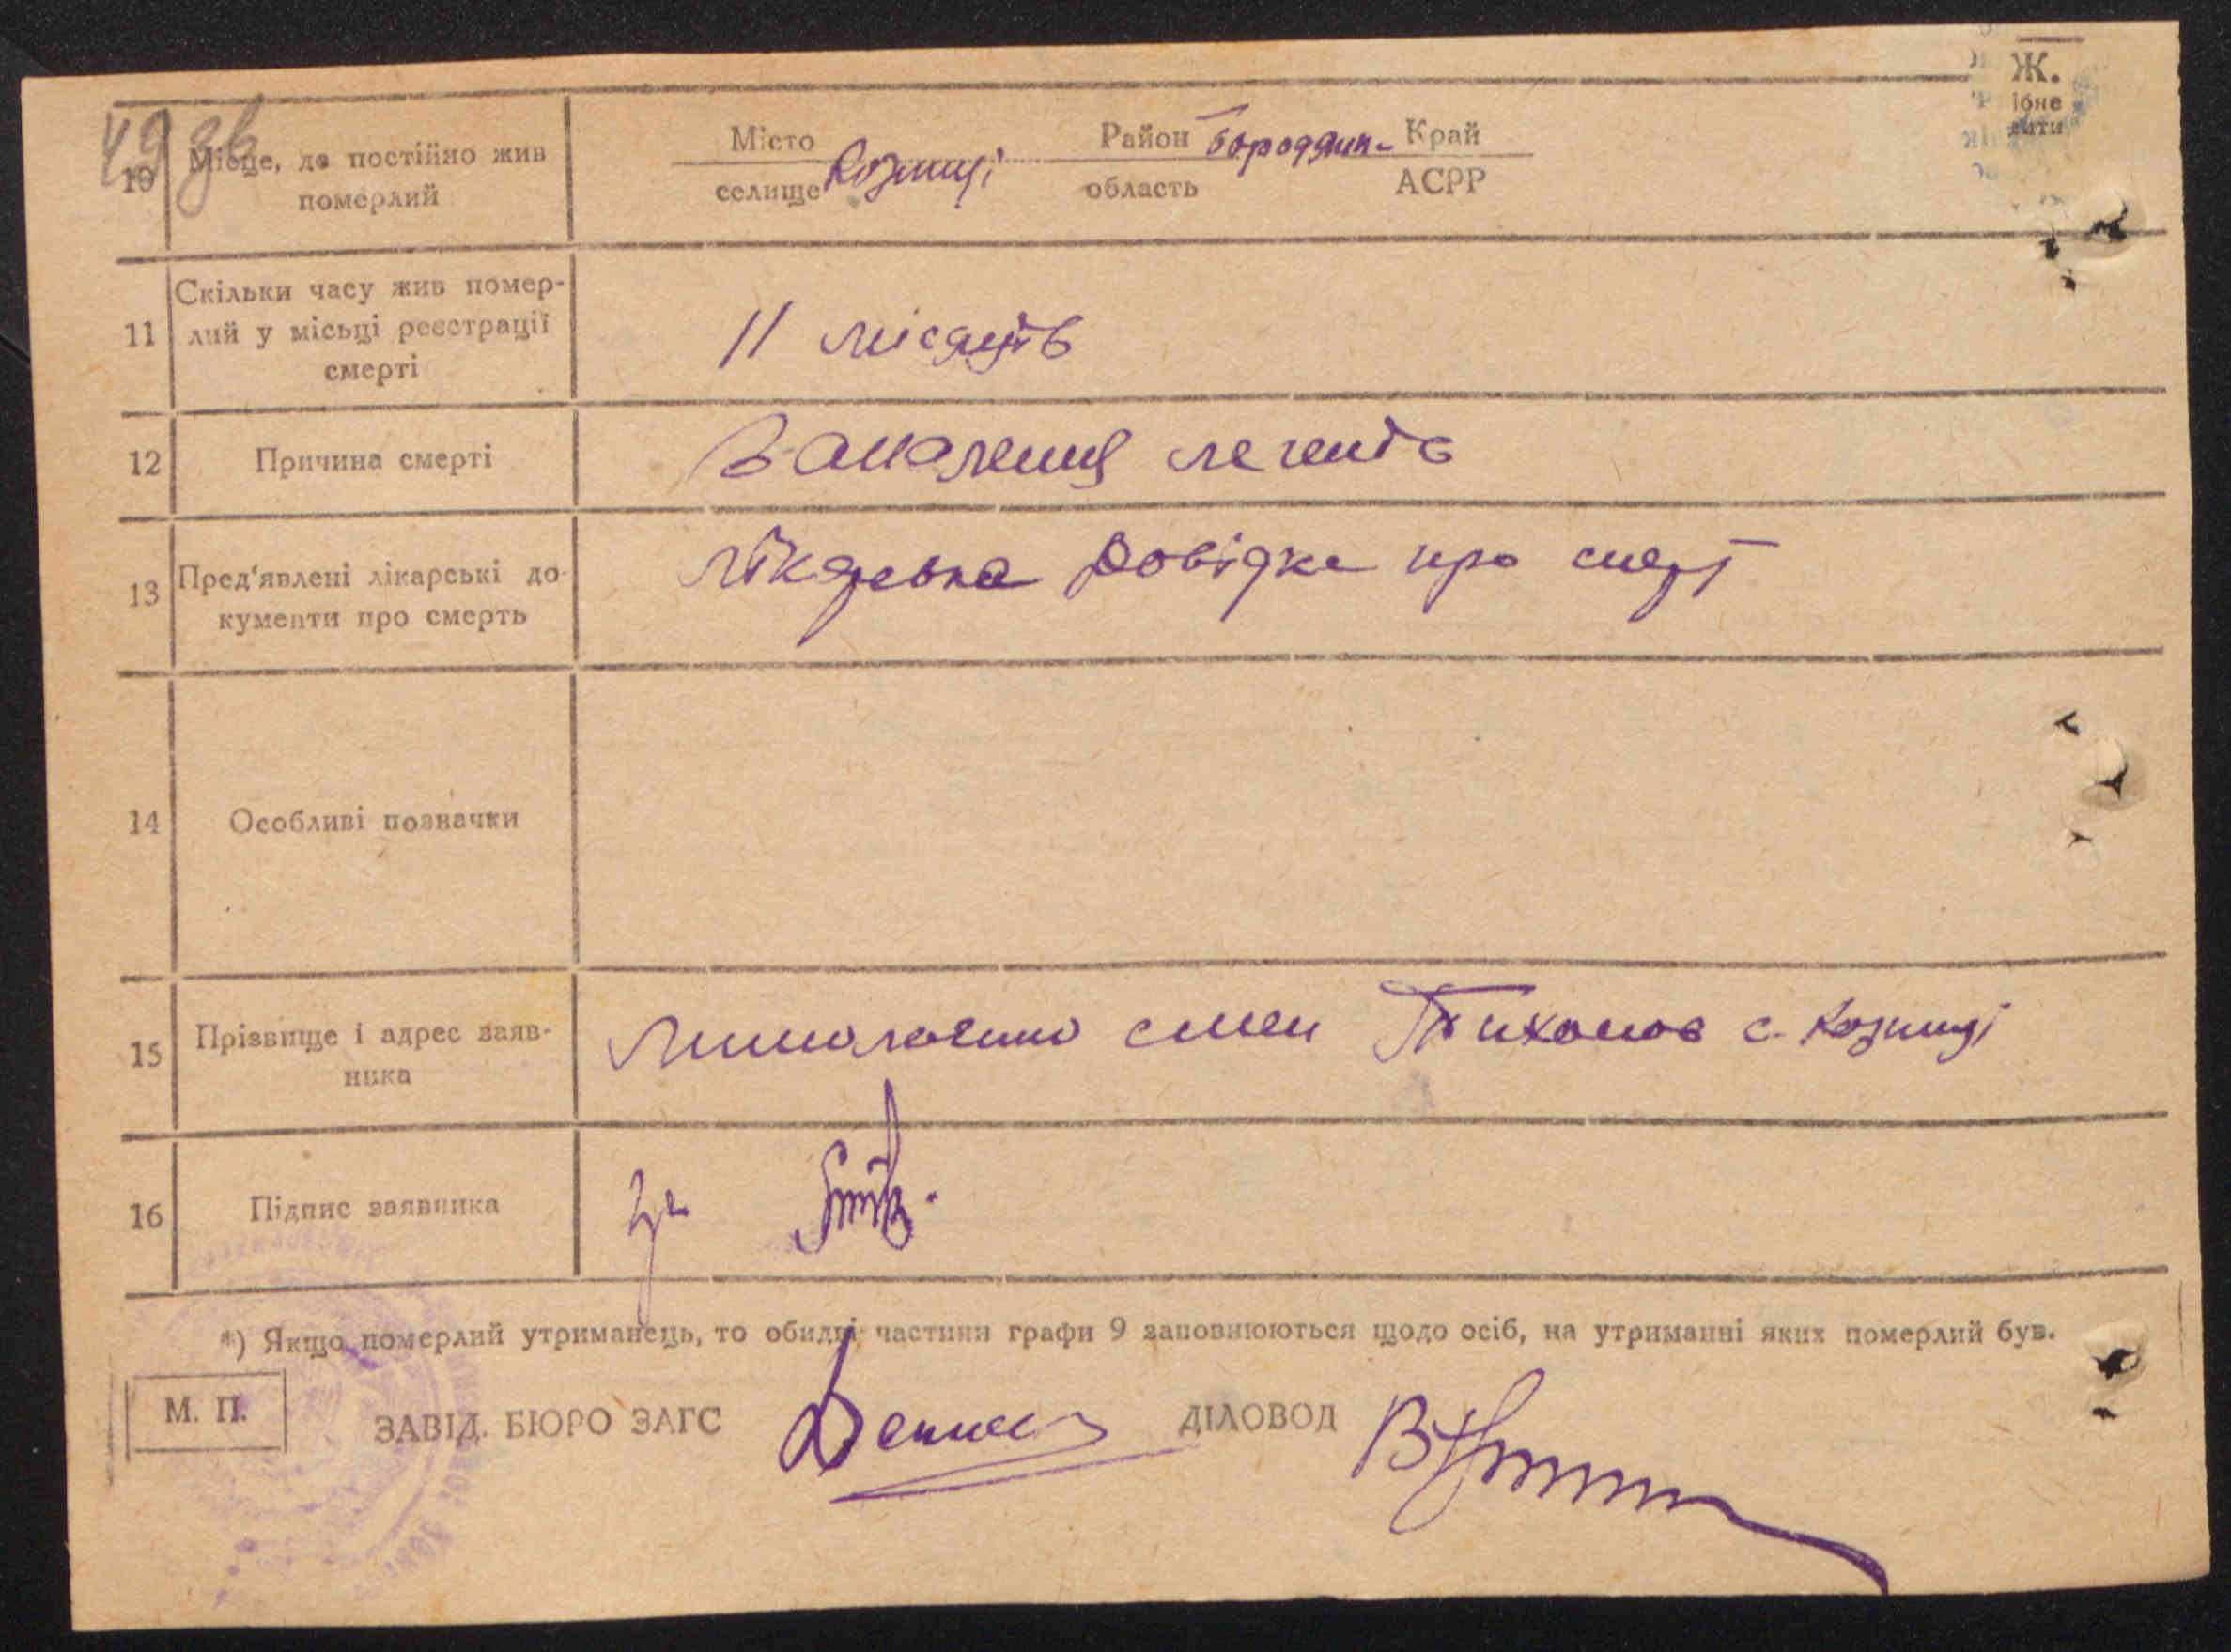 Ж.
ібне
49 зв
10 Місце, де постійно жив померлий
Місто Козинці Район Бородян- Край
селище область АСРР
11 Скільки часу жив помер-
лий у місьці реєстрації
смерті
11 місяців
12 Причина смерті Запалення легенів
13 Пред'явлені лікарські до-
кументи про смерть
лікарська довідка про смерт
14 Особливі позначки
15 Прізвище і адрес заяв-
ника
Тихонов с. Козинці
16 Підпис заявника за
*) Якщо померлий утриманець, то обидві частини графи 9 заповнюються щодо осіб, на утриманні яких померлий був.
М. П. ЗАВІД. БЮРО ЗАГС ДІЛОВОД